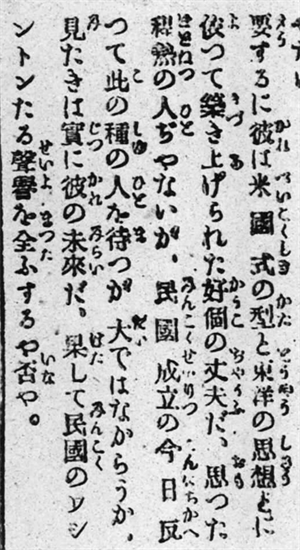 要するに彼は米國式の型と東洋の思想とに
依つて築き上げられた好個の丈夫だ、思つた
程熱の人ぢやないが、民國成立の今日反
つて此の種の人を待つが大ではなからうか。
見たきは實に彼の未來だ、果して民國のワシ
ントンたる聲譽を全ふするや否や。